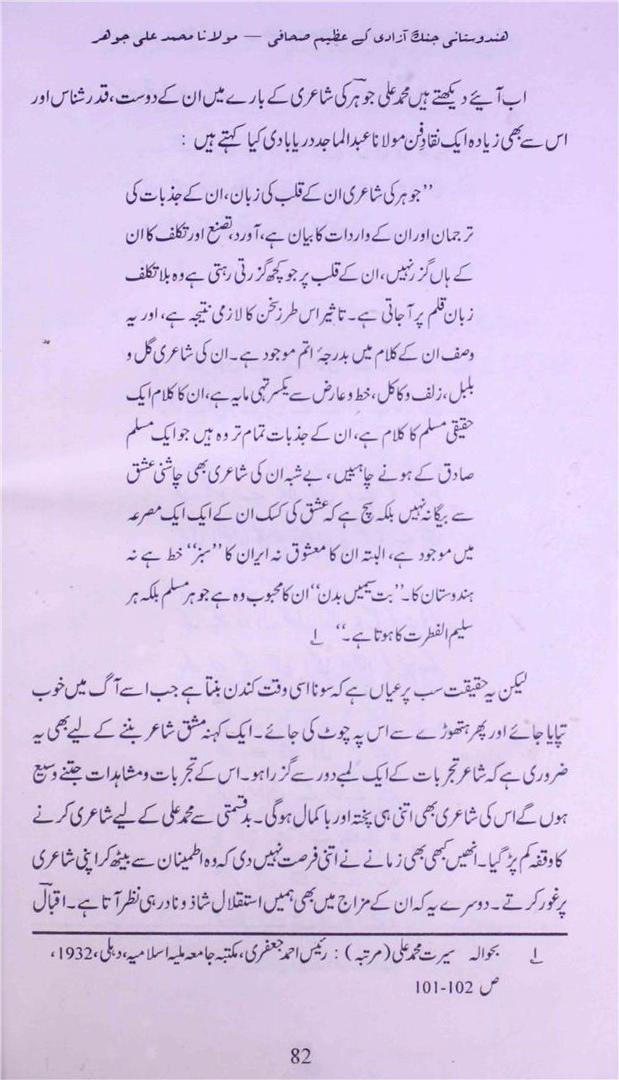 هندوستانی جنگ آزادی کے عظیم صحافی — مولانا محمد علی جوهر
اب آیئے دیکھتے ہیں محمد علی جوہرؔ کی شاعری کے بارے میں ان کے دوست، قدر شناس اور
اس سے بھی زیادہ ایک نقادِ فن مولانا عبدالماجد دریابادی کیا کہتے ہیں :
”جوہر کی شاعری ان کے قلب کی زبان، ان کے جذبات کی
ترجمان اور ان کے واردات کا بیان ہے، آورد، تصنع اور تکلف کا ان
کے ہاں گزر نہیں، ان کے قلب پر جو کچھ گزرتی رہتی ہے وہ بلا تکلف
زبان قلم پر آ جاتی ہے۔ تاثیر اس طرز سخن کا لازمی نتیجہ ہے، اور یہ
وصف ان کے کلام میں بدرجۂ اتم موجود ہے۔ ان کی شاعری گل و
بلبل، زلف و کاکل، خط و عارض سے یکسر تہی مایہ ہے، ان کا کلام ایک
حقیقی مسلم کا کلام ہے، ان کے جذبات تمام تر وہ ہیں جو ایک مسلم
صادق کے ہونے چاہییں، بے شبہ ان کی شاعری بھی چاشنی عشق
سے بیگانہ نہیں بلکہ سچ ہے کہ عشق کی کسک ان کے ایک ایک مصرعہ
میں موجود ہے، البتہ ان کا معشوق نہ ایران کا ”سبز“ خط ہے نہ
ہندوستان کا۔ ”بت سیمیں بدن“ ان کا محبوب وہ ہے جو ہر مسلم بلکہ ہر
سلیم الفطرت کا ہوتا ہے۔“ ۱؎
لیکن یہ حقیقت سب پر عیاں ہے کہ سونا اسی وقت کندن بنتا ہے جب اسے آگ میں خوب
تپایا جائے اور پھر ہتھوڑے سے اس پہ چوٹ کی جائے۔ ایک کہنہ مشق شاعر بننے کے لیے بھی یہ
ضروری ہے کہ شاعر تجربات کے ایک لمبے دور سے گزرا ہو۔ اس کے تجربات و مشاہدات جتنے وسیع
ہوں گے اس کی شاعری بھی اتنی ہی پختہ اور باکمال ہوگی۔ بدقسمتی سے محمد علی کے لیے شاعری کرنے
کا وقفہ کم پڑ گیا۔ انھیں کبھی بھی زمانے نے اتنی فرصت نہیں دی کہ وہ اطمینان سے بیٹھ کر اپنی شاعری
پر غور کرتے۔ دوسرے یہ کہ ان کے مزاج میں بھی ہمیں استقلال شاذ و نادر ہی نظر آتا ہے۔ اقبالؔ
۱؎ بحوالہ سیرت محمد علی (مرتبہ) : رئیس احمد جعفری، مکتبہ جامعہ ملیہ اسلامیہ، دہلی، 1932،
ص 101-102
82